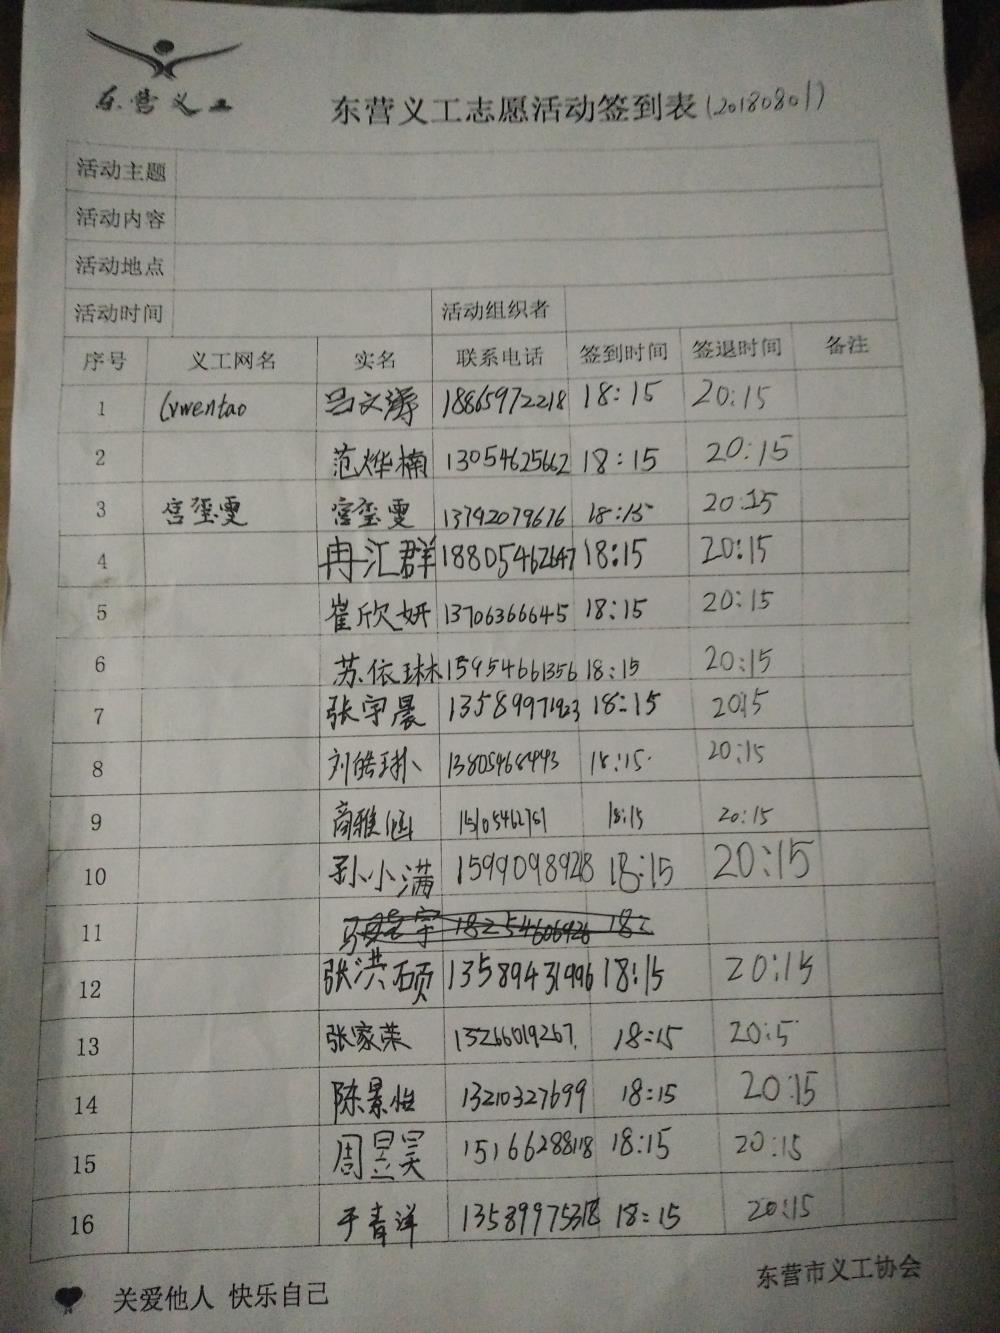 东营义工
东营义工志愿活动签到表(20180801)
活动主题
活动内容
活动地点
活动时间 活动组织者
序号 义工网名 实名 联系电话 签到时间 签退时间 备注
1 lvwentao 吕文涛 18865972218 18:15 20:15
2 范烨楠 13054625662 18:15 20:15
3 宫玺雯 宫玺雯 13792079676 18:15 20:15
4 冉汇群 18805462647 18:15 20:15
5 崔欣妍 13706366645 18:15 20:15
6 苏依琳 15954661356 18:15 20:15
7 张宇晨 13589971923 18:15 20:15
8 刘皓 18:15 20:15
9 商雅涵 15105462751 18:15 20:15
10 孙小满 15990989218 18:15 20:15
11
12 张洪硕 13589431996 18:15 20:15
13 张家荣 13266019267 18:15 20:15
14 陈景怡 13210327699 18:15 20:15
15 周昱昊 15166288118 18:15 20:15
16 于青洋 18:15 20:15
关爱他人 快乐自己
东营市义工协会